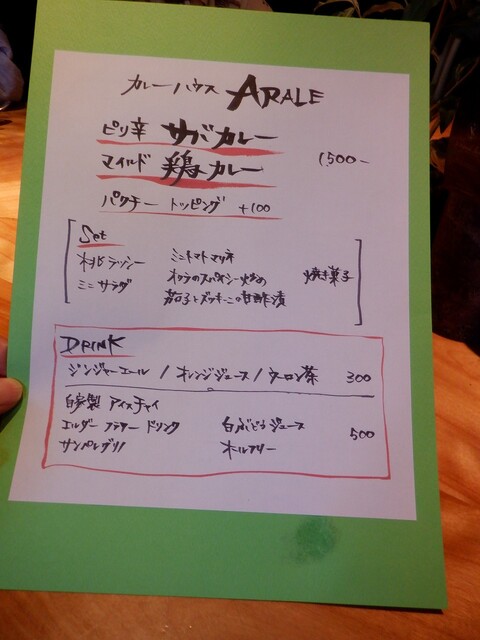 カレーハウス ARALE
ピリ辛 サバカレー
マイルド 鶏カレー 1,500-
パクチー トッピング +100
Set
桃ラッシー ミニトマトマリネ
ミニサラダ オクラのスパイシー炒め 焼き菓子
茄子とズッキーニの甘酢漬
DRINK
ジンジャーエール / オレンジジュース / ウーロン茶 300
自家製 アイスチャイ
エルダーフラワー ドリンク 白ぶどうジュース 500
サンペレグリノ ホールフリー